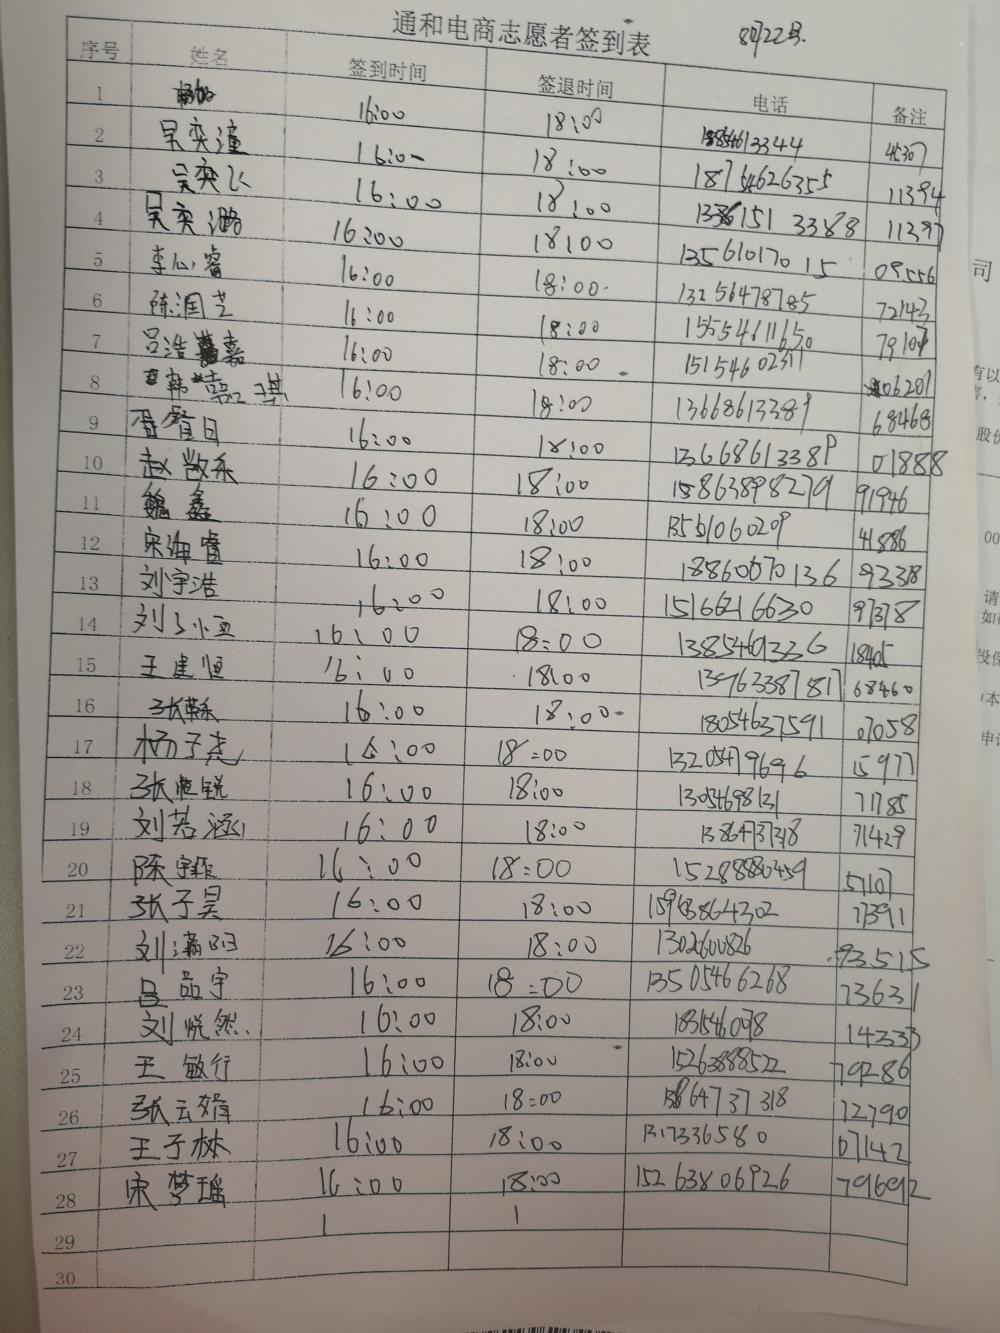 通和电商志愿者签到表 8月22号.
序号 姓名 签到时间 签退时间 电话 备注
1 16:00 18:00 45307
2 吴奕潼 16:00 18:00 18754626355 11394
3 吴奕飞 16:00 18:00 3388 11397
4 吴奕潞 16:00 18:00 13561017015 09556
5 李心睿 16:00 18:00 13256478785 72143
6 陈润芝 16:00 18:00 15554611650
7 吕浩嘉 16:00 18:00 06201
8 韩 琪 16:00 18:00 13668613389 68468
9 16:00 18:00 13668613389 01888
10 赵 16:00 18:00 15863898279 91946
11 魏鑫 16:00 18:00 13561060209 41886
12 宋海睿 16:00 18:00 18860070136
13 刘宇浩 16:00 18:00 15166216630 97378
14 刘子恒 16:00 18:00 13854693336 18405
15 王建恒 16:00 18:00 13963387817 68460
16 张 16:00 18:00 18054637591 07058
17 杨子尧 16:00 18:00 13205479696 15977
18 张恺锐 16:00 18:00 71785
19 刘若涵 16:00 18:00 71429
20 陈宇菲 16:00 18:00 57107
21 张子昊 16:00 18:00 77391
22 刘满阳 16:00 18:00 93515
23 吕品宇 16:00 18:00 13505466268 73631
24 刘悦然 16:00 18:00 14333
25 王敏行 16:00 18:00 15263888522 79286
26 张云娟 16:00 18:00 15864737318 72790
27 王子林 16:00 18:00 07142
28 宋梦瑶 16:00 18:00 15263806926 79692
29
30